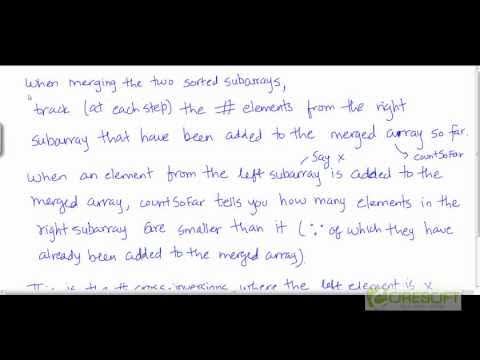 when merging the two sorted subarrays,
track (at each step) the # elements from the right
subarray that have been added to the merged array so far.
say x
countSoFar
when an element from the left subarray is added to the
merged array, countSoFar tells you how many elements in the
right subarray are smaller than it (∵ of which they have
already been added to the merged array).
is the # cross-inversions where the left element is x
CORESOFT